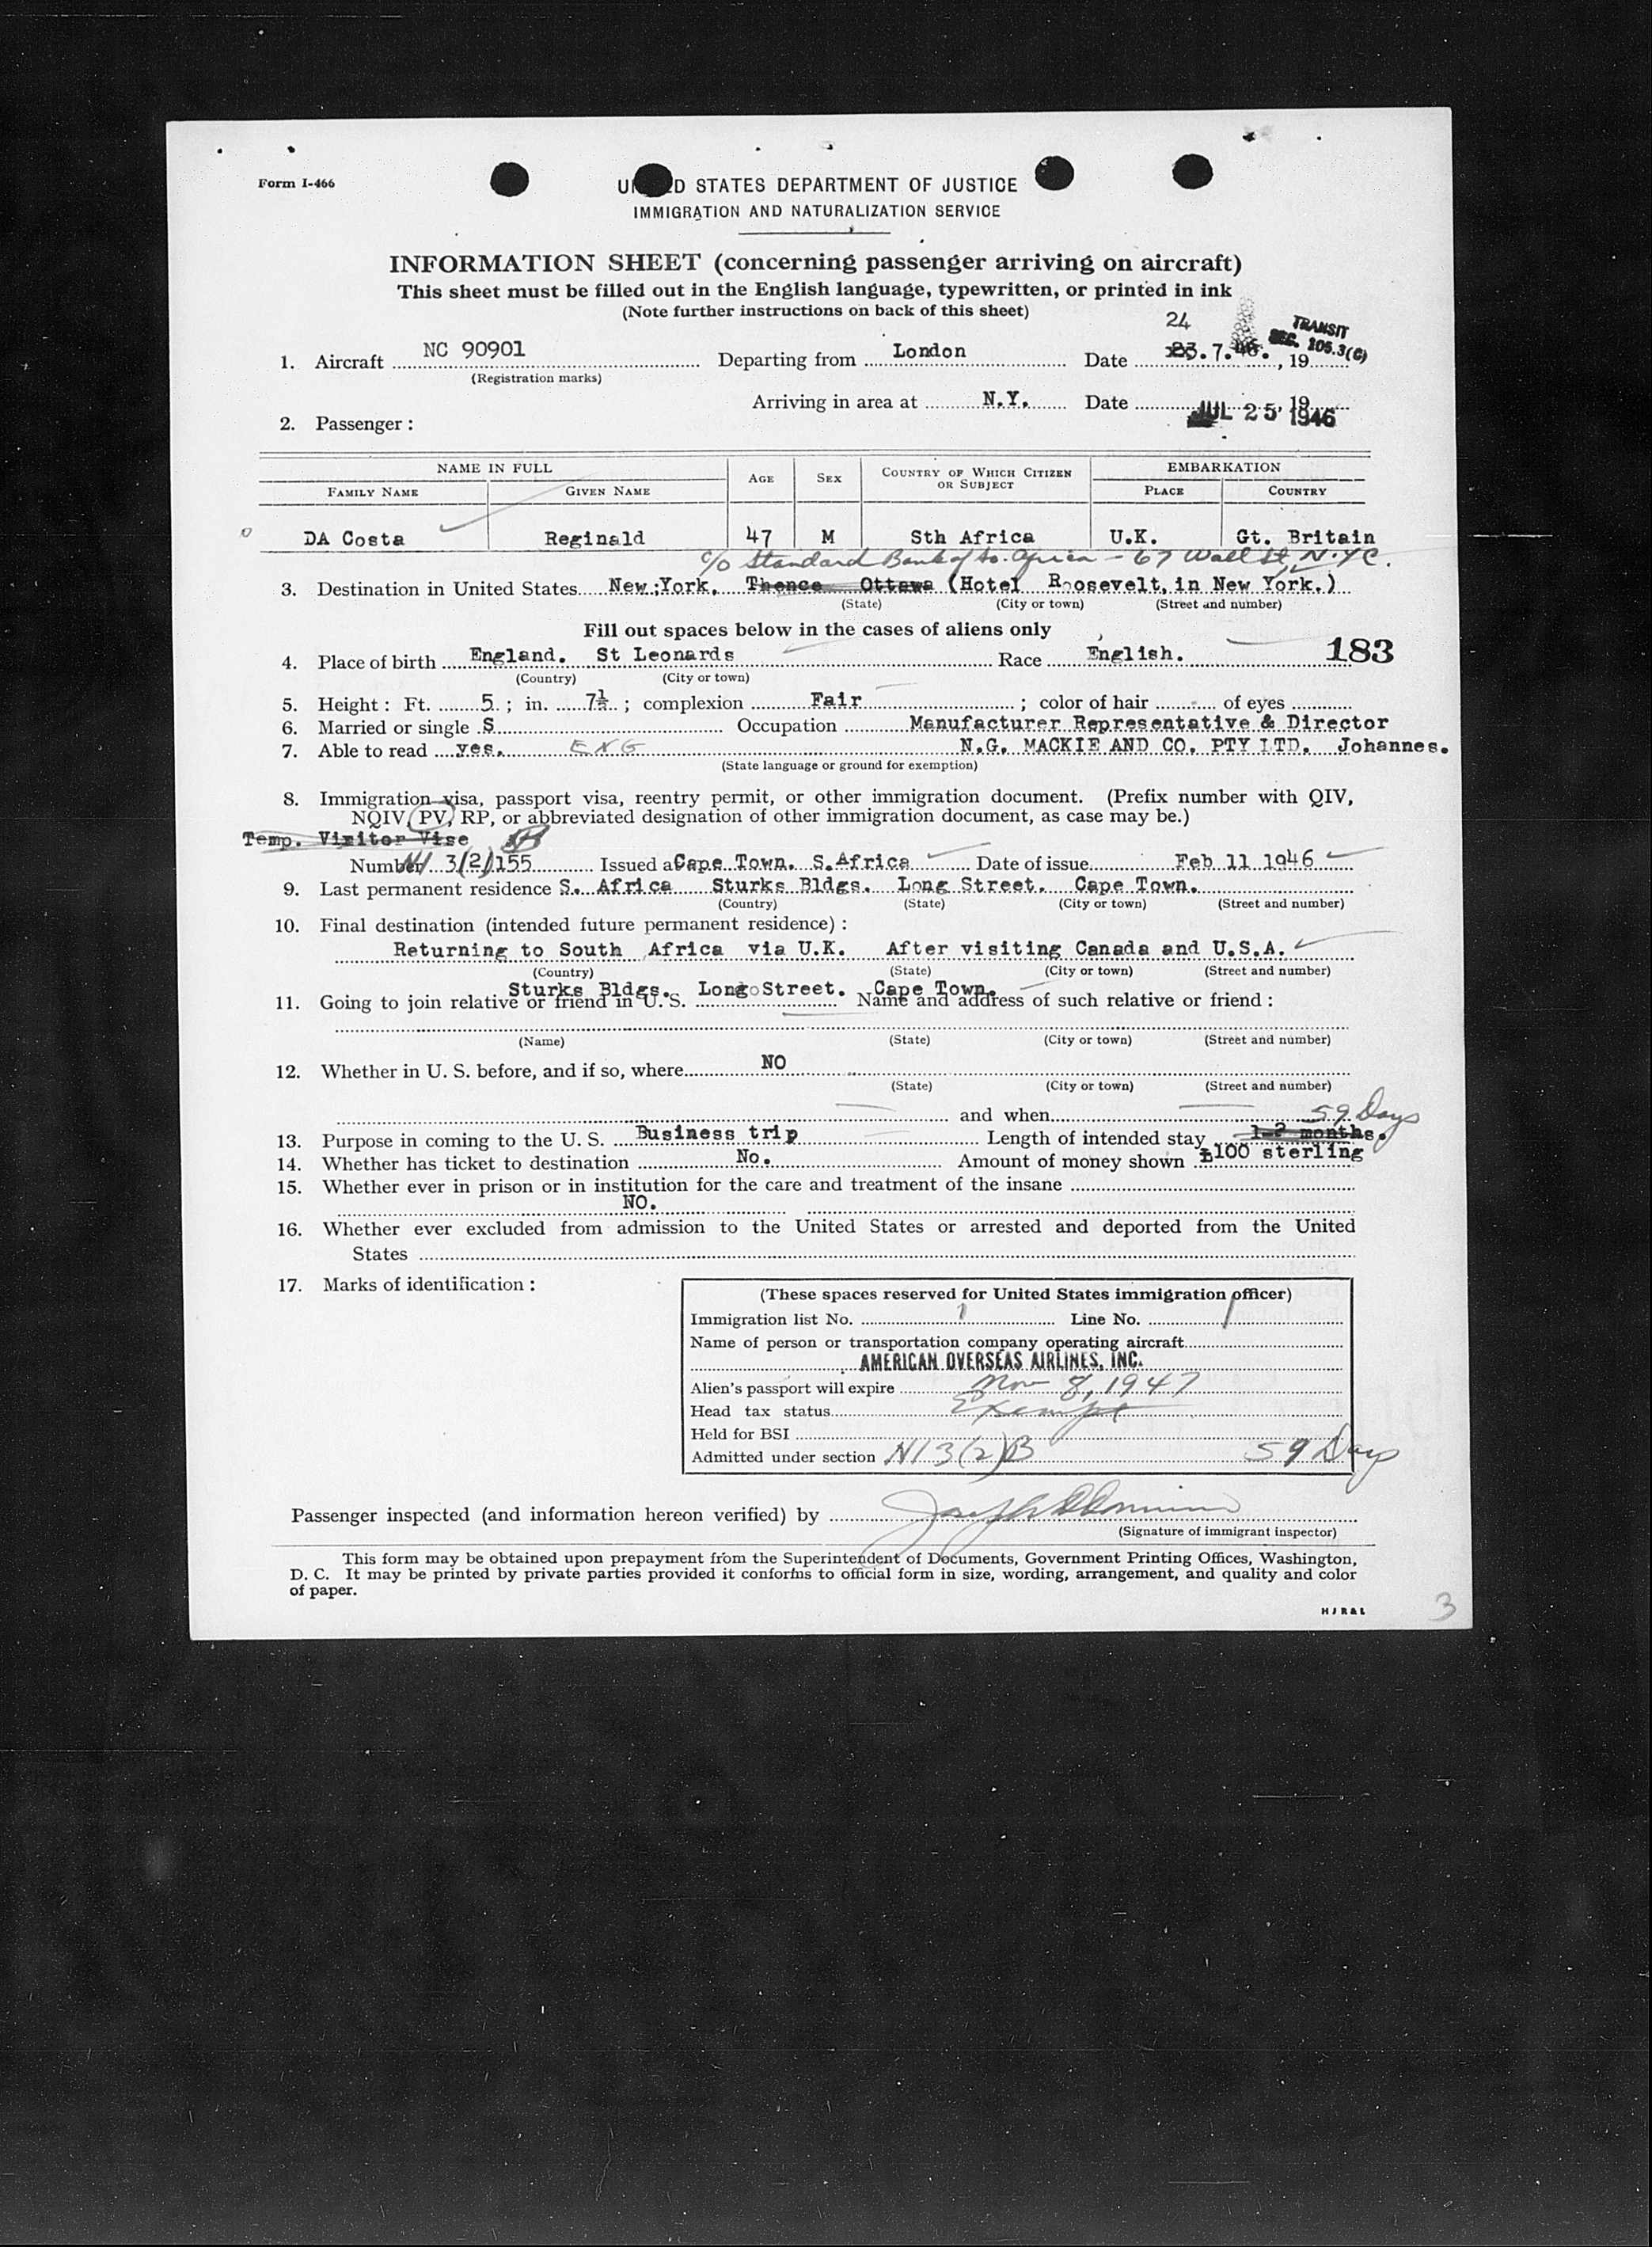 Form I-466
UNITED STATES DEPARTMENT OF JUSTICE
IMMIGRATION AND NATURALIZATION SERVICE
INFORMATION SHEET (concerning passenger arriving on aircraft)
This sheet must be filled out in the English language, typewritten, or printed in ink
(Note further instructions on back of this sheet)
24
TRANSIT
SEC. 105.3(C)
1. Aircraft NC 90901 Departing from London Date 23.7.46. , 19
(Registration marks)
Arriving in area at N.Y. Date JUL 25 1946, 19
2. Passenger :
NAME IN FULL AGE SEX COUNTRY OF WHICH CITIZEN OR SUBJECT EMBARKATION
FAMILY NAME GIVEN NAME PLACE COUNTRY
DA Costa Reginald 47 M Sth Africa U.K. Gt. Britain
c/o Standard Bank of So. Africa - 67 Wall St, N.Y.C.
3. Destination in United States New ;York. Thence Ottawa (Hotel Roosevelt, in New York.)
(State) (City or town) (Street and number)
Fill out spaces below in the cases of aliens only
4. Place of birth England. St Leonards Race English. 183
(Country) (City or town)
5. Height : Ft. 5 ; in. 7½ ; complexion Fair ; color of hair of eyes
6. Married or single S Occupation Manufacturer Representative & Director
7. Able to read yes. ENG N.G. MACKIE AND CO. PTY LTD. Johannes.
(State language or ground for exemption)
8. Immigration visa, passport visa, reentry permit, or other immigration document. (Prefix number with QIV,
NQIV, PV, RP, or abbreviated designation of other immigration document, as case may be.)
Temp. Visitor Vise
Number 3(2)155 Issued a Cape Town. S.Africa Date of issue Feb 11 1946
9. Last permanent residence S. Africa Sturks Bldgs. Long Street. Cape Town.
(Country) (State) (City or town) (Street and number)
10. Final destination (intended future permanent residence) :
Returning to South Africa via U.K. After visiting Canada and U.S.A.
(Country) (State) (City or town) (Street and number)
Sturks Bldgs. Long Street. Cape Town.
11. Going to join relative or friend in U. S. Name and address of such relative or friend :
(Name) (State) (City or town) (Street and number)
12. Whether in U. S. before, and if so, where NO
(State) (City or town) (Street and number)
and when
59 Days
13. Purpose in coming to the U. S. Business trip Length of intended stay 1-2 months.
14. Whether has ticket to destination No. Amount of money shown £100 sterling
15. Whether ever in prison or in institution for the care and treatment of the insane
NO.
16. Whether ever excluded from admission to the United States or arrested and deported from the United
States
17. Marks of identification :
(These spaces reserved for United States immigration officer)
Immigration list No. 1 Line No. 1
Name of person or transportation company operating aircraft
AMERICAN OVERSEAS AIRLINES, INC.
Alien's passport will expire Nov 8, 1947
Head tax status Exempt
Held for BSI
Admitted under section NI 3(2)B 59 Days
Passenger inspected (and information hereon verified) by
(Signature of immigrant inspector)
This form may be obtained upon prepayment from the Superintendent of Documents, Government Printing Offices, Washington,
D. C. It may be printed by private parties provided it conforms to official form in size, wording, arrangement, and quality and color
of paper.
H J R & L
3